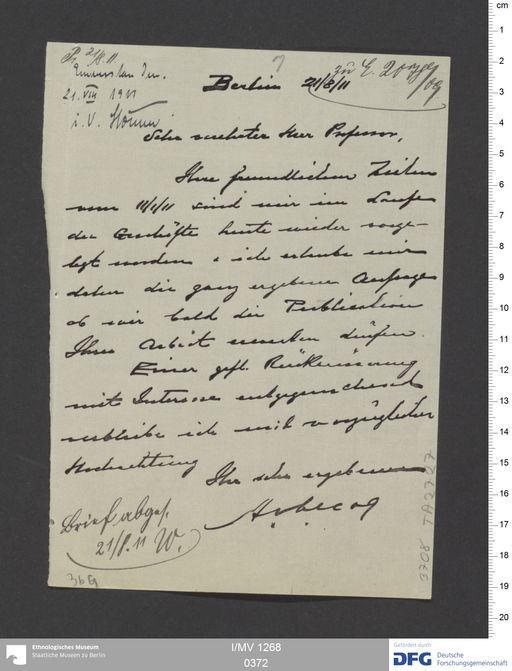 21/8 11
Einverstanden.
21. VIII 1911
i. V.
7
zu E. 2073/09
Berlin 21/8/11
Sehr verehrter Herr Professor,
Ihre freundlichen Zeilen
vom 11/1/11 sind mir im Laufe
der Geschäfte heute wieder vorge-
legt worden & ich erlaube mir
daher die ganz ergebene Anfrage
ob wir bald die Publication
Ihrer Arbeit erwarten dürfen.
Einer gefl. Rückäusserung
mit Interesse entgegensehend
verbleibe ich mit vorzüglicher
Hochachtung
Ihr sehr ergebener
Brief abges.
21/8. 11 W.
36 g
3708 TA2727
cm
1
2
3
4
5
6
7
8
9
10
11
12
13
14
15
16
17
18
19
20
Ethnologisches Museum
Staatliche Museen zu Berlin
I/MV 1268
0372
Gefördert durch
DFG Deutsche
Forschungsgemeinschaft